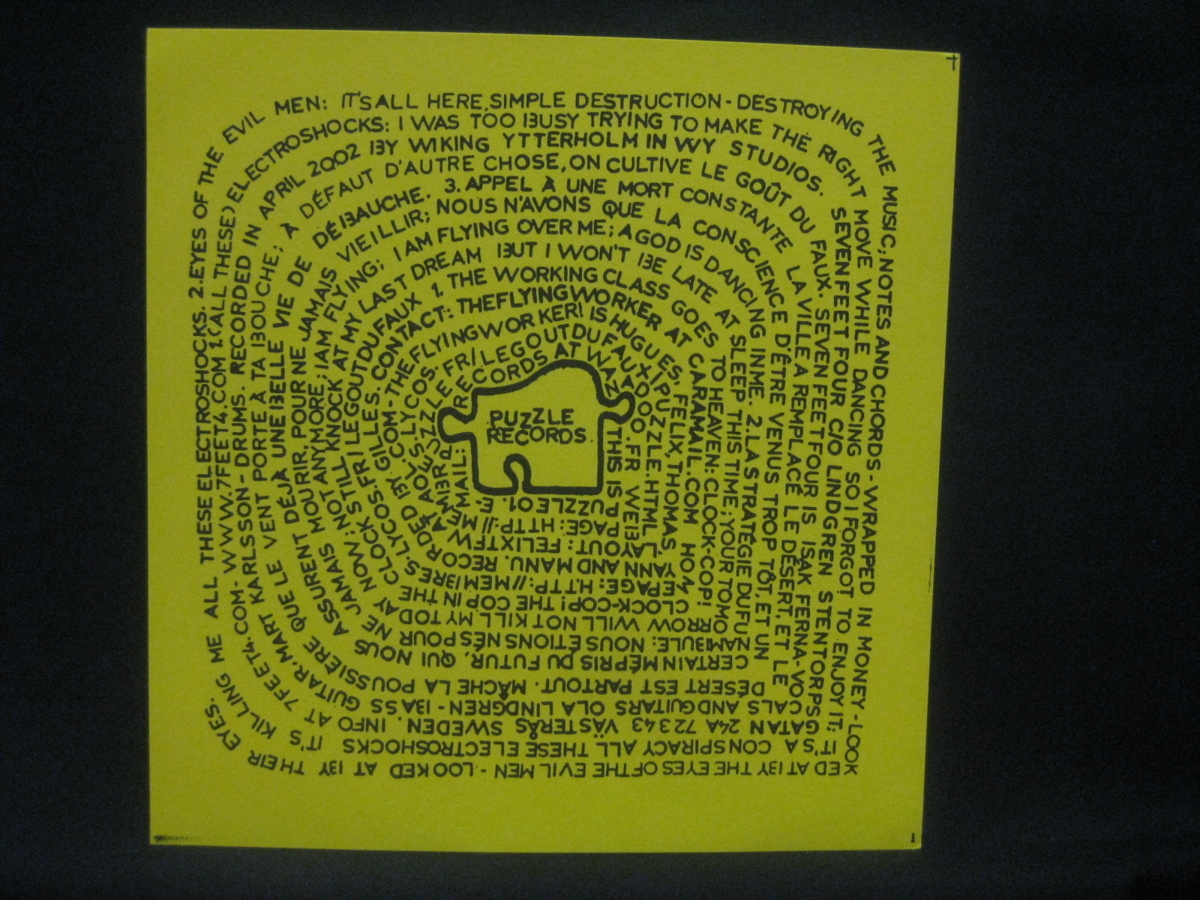 PUZZLE
RECORDS
THIS IS PUZZLE 01. E-MAIL: RECORDS AT WAZAOO.FR WEBPAGE: HTTP://MEMBRES.LYCOS.FR/LEGOUTDUFAUX/PUZZLE.HTML LAYOUT: FELIXTFW AT AOL.COM - THEFLYINGWORKER! IS HUGUES, FELIX, THOMAS, YANN AND MANU. RECORDED BY GILLES. CONTACT: THEFLYINGWORKER AT CARAMAIL.COM HOMEPAGE: HTTP://MEMBRES.LYCOS.FR/LEGOUTDUFAUX 1. THE WORKING CLASS GOES TO HEAVEN: CLOCK-COP! CLOCK-COP! THE COP IN THE CLOCK STILL KNOCK AT MY LAST DREAM BUT I WON'T BE LATE AT SLEEP THIS TIME; YOUR TOMORROW WILL NOT KILL MY TODAY NOW; NOT ANYMORE; I AM FLYING; I AM FLYING OVER ME; A GOD IS DANCING IN ME. 2. LA STRATÉGIE DU FUNAMBULE: NOUS ETIONS NÉS POUR NE JAMAIS MOURIR, POUR NE JAMAIS VIEILLIR; NOUS N'AVONS QUE LA CONSCIENCE D'ÊTRE VENUS TROP TÔT, ET UN CERTAIN MÉPRIS DU FUTUR, QUI NOUS ASSURENT DÉJÀ UNE BELLE VIE DE DÉBAUCHE. 3. APPEL À UNE MORT CONSTANTE LA VILLE A REMPLACÉ LE DÉSERT, ET LE DÉSERT EST PARTOUT. MÂCHE LA POUSSIÈRE QUE LE VENT PORTE À TA BOUCHE; À DÉFAUT D'AUTRE CHOSE, ON CULTIVE LE GOÛT DU FAUX. SEVEN FEET FOUR IS ISAK FERNA-VOCALS AND GUITARS OLA LINDGREN - BASS GUITAR. MART KARLSSON - DRUMS. RECORDED IN APRIL 2002 BY WIKING YTTERHOLM IN WY STUDIOS. SEVEN FEET FOUR C/O LINDGREN STENTORPSGATAN 24A 72343 VÄSTERÅS SWEDEN. INFO AT 7FEET4.COM- WWW.7FEET4.COM 1.(ALL THESE) ELECTROSHOCKS: I WAS TOO BUSY TRYING TO MAKE THE RIGHT MOVE WHILE DANCING SO I FORGOT TO ENJOY IT; IT'S A CONSPIRACY ALL THESE ELECTROSHOCKS IT'S KILLING ME ALL THESE ELECTROSHOCKS. 2.EYES OF THE EVIL MEN: IT'S ALL HERE, SIMPLE DESTRUCTION - DESTROYING THE MUSIC, NOTES AND CHORDS - WRAPPED IN MONEY - LOOKED AT BY THE EYES OF THE EVIL MEN - LOOKED AT BY THEIR EYES.